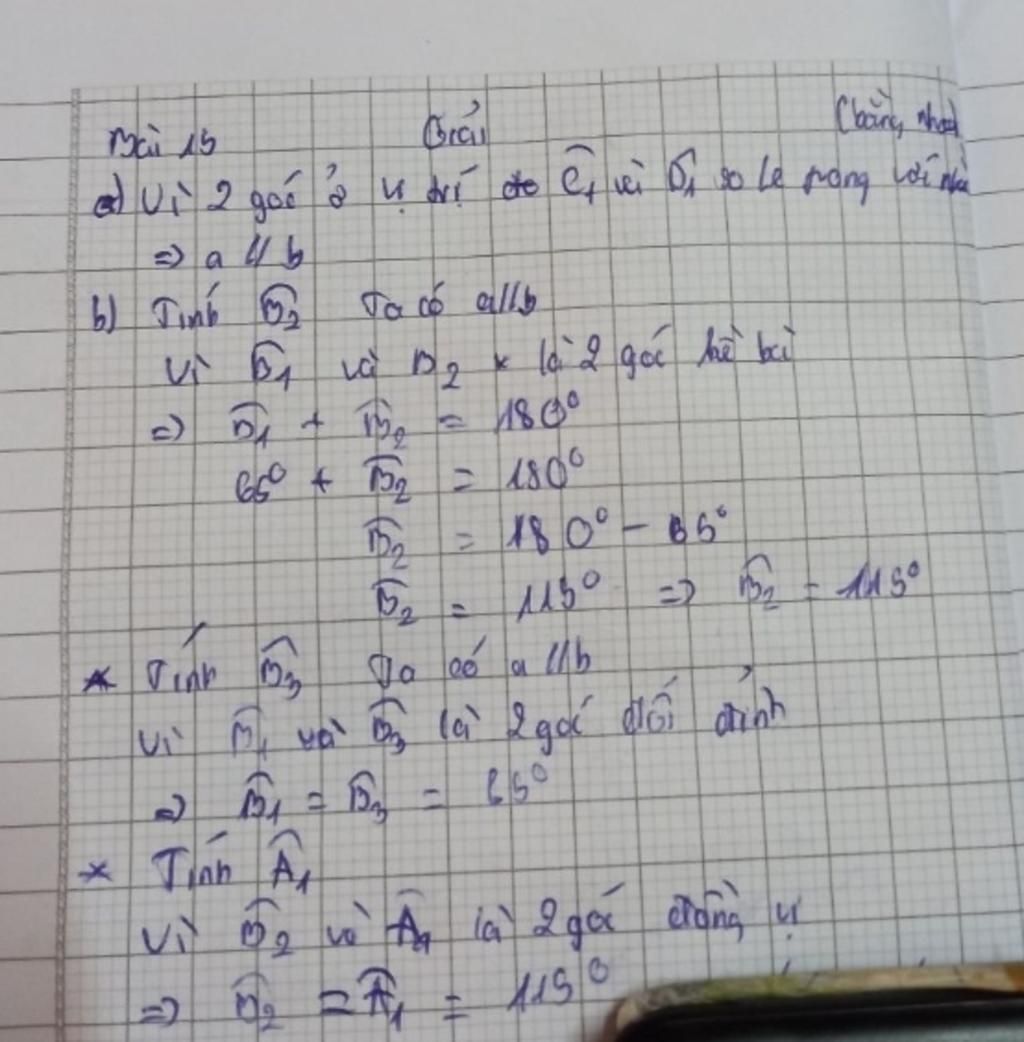 Bài 15 Giải (bằng nhau)
a) Vì 2 góc ở vị trí Ĉ₁ và B̂₁ so le trong với nhau
=> a // b
b) Tính B̂₂ Ta có a//b
Vì B̂₁ và B₂ là 2 góc kề bù
=> B̂₁ + B̂₂ = 180°
65° + B̂₂ = 180°
B̂₂ = 180° - 65°
B̂₂ = 115° => B̂₂ = 115°
* Tính B̂₃ Ta có a //b
Vì B̂₁ và B̂₃ là 2 góc đối đỉnh
=> B̂₁ = B̂₃ = 65°
* Tính Â₁
Vì B̂₂ và Â₁ là 2 góc đồng vị
=> B̂₂ = Â₁ = 115°